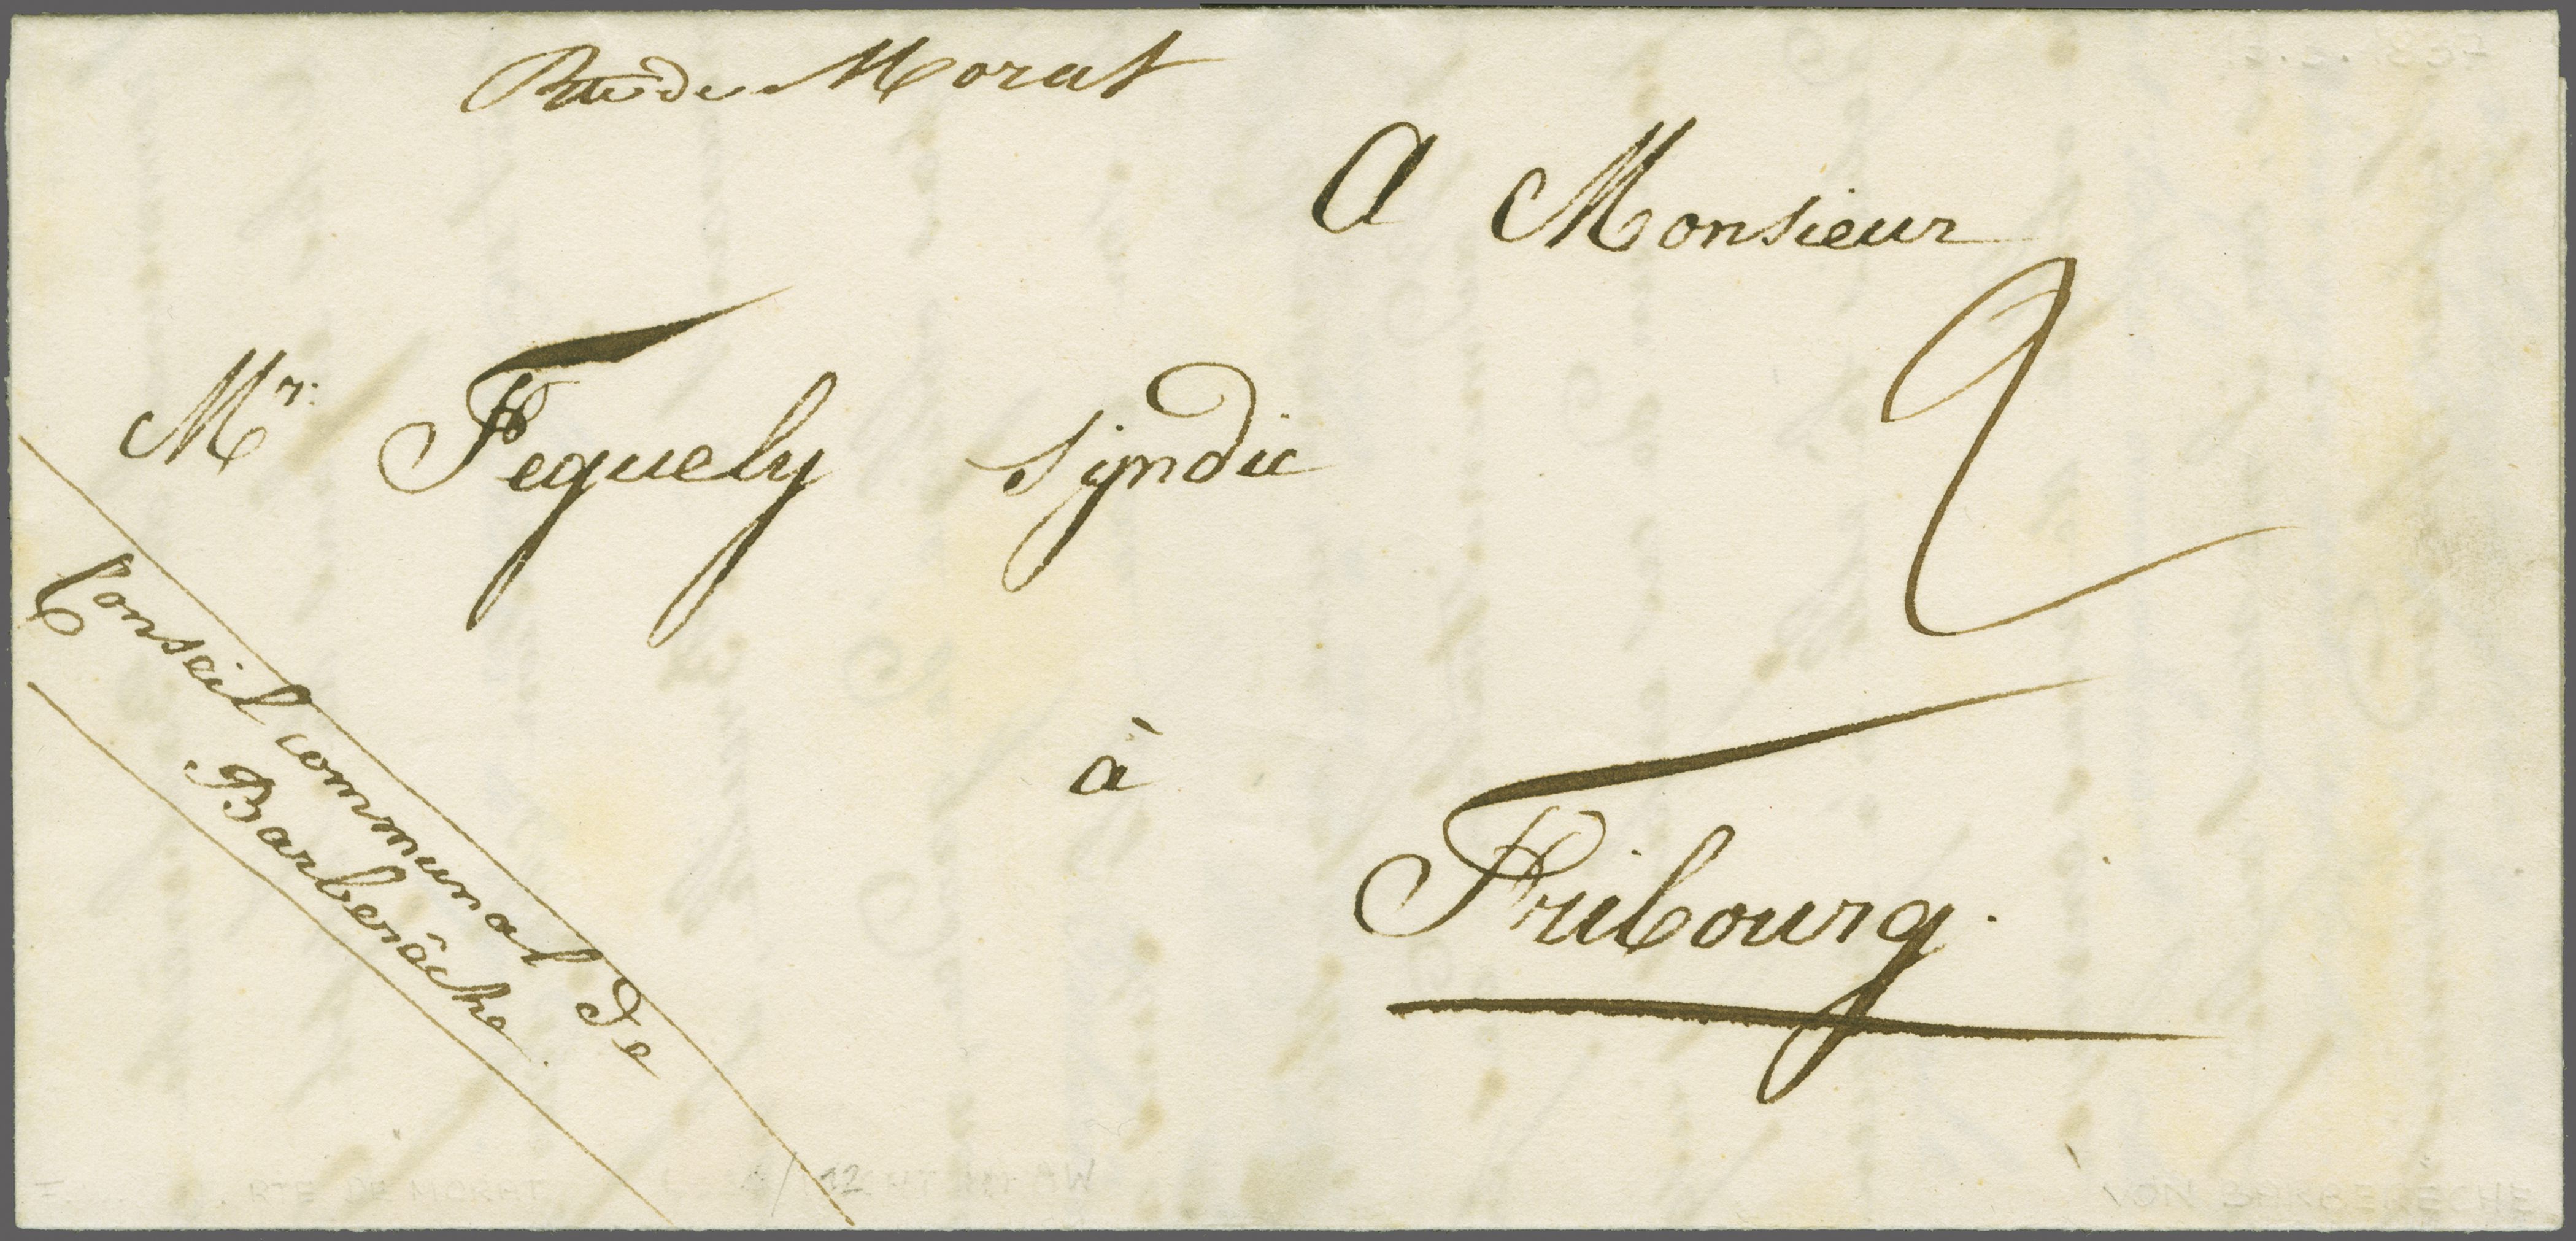 Rte de Morat
A Monsieur
2
Mr. Fequely Syndic
à
Fribourg.
Conseil communal de
Barberâche.
RTE DE MORAT
12
VON BARBERÊCHE